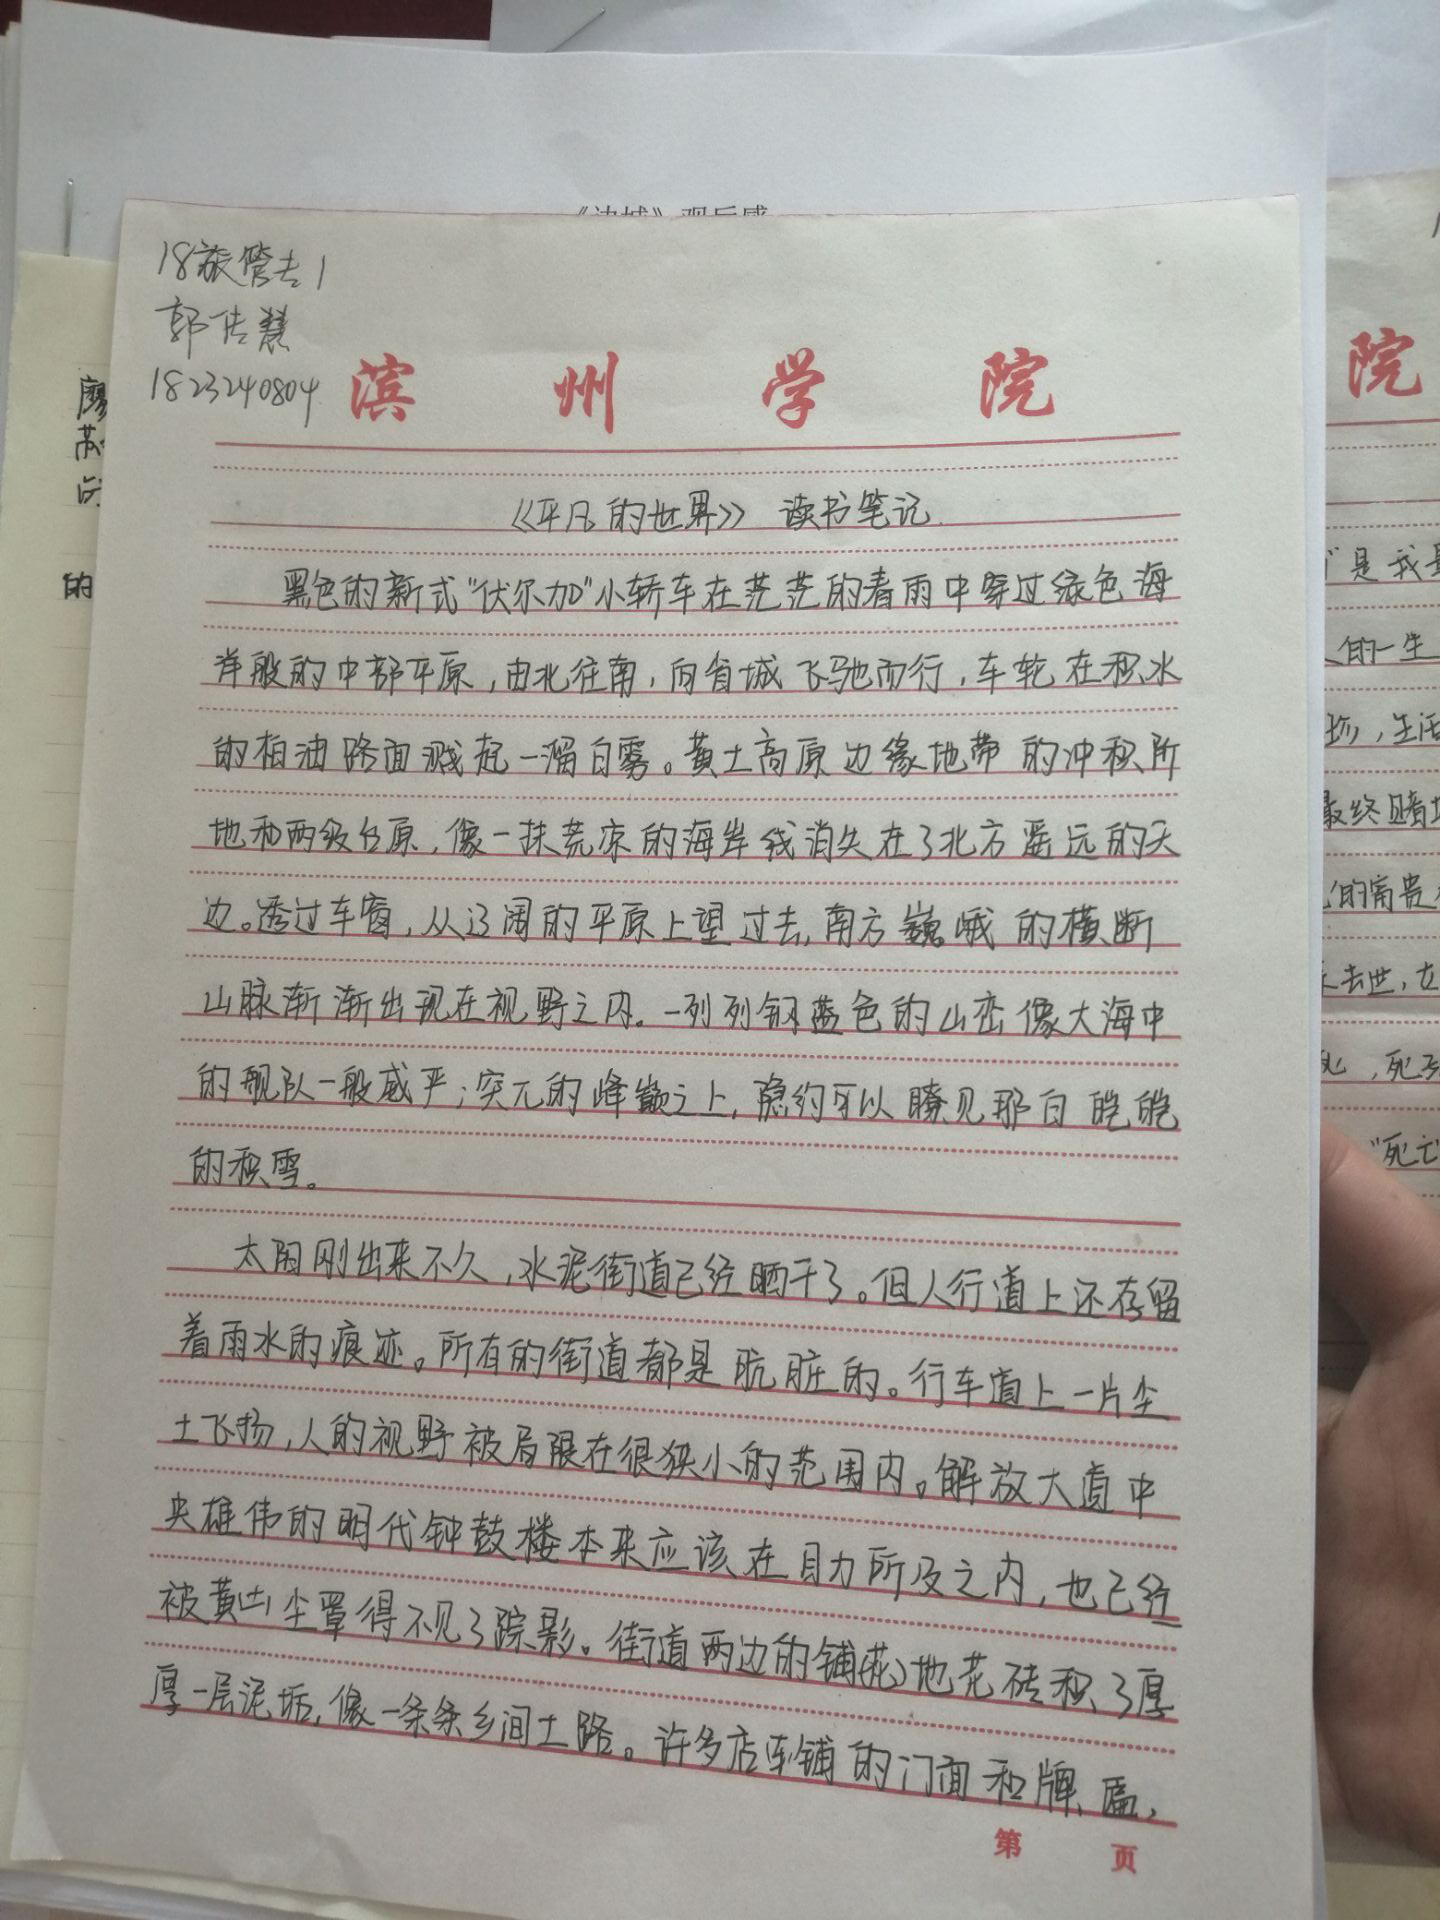 《边城》观后感
18旅管专1
郭传慧
1823240804
滨州学院
《平凡的世界》 读书笔记
黑色的新式“伏尔加”小轿车在茫茫的春雨中穿过绿色海
洋般的中部平原，由北往南，向省城飞驰而行，车轮在积水
的柏油路面溅起一溜白雾。黄土高原边缘地带的冲积阶
地和两级台原，像一抹荒凉的海岸线消失在了北方遥远的天
边。透过车窗，从辽阔的平原上望过去，南方巍峨的横断
山脉渐渐出现在视野之内。一列列钢蓝色的山峦像大海中
的舰队一般威严；突兀的峰巅之上，隐约可以瞭见那白皑皑
的积雪。
太阳刚出来不久，水泥街道已经晒干了。但人行道上还存留
着雨水的痕迹。所有的街道都是肮脏的。行车道上一片尘
土飞扬，人的视野被局限在很狭小的范围内。解放大道中
央雄伟的明代钟鼓楼本来应该在目力所及之内，也已经
被黄尘罩得不见了踪影。街道两边的铺(花)地花砖积了厚
厚一层泥垢，像一条条乡间土路。许多店铺的门面和牌匾，
第 页
廖
苏
的
院
是我
的一生
珍，生活
最终赌
的富贵
去世，
死，死
“死亡